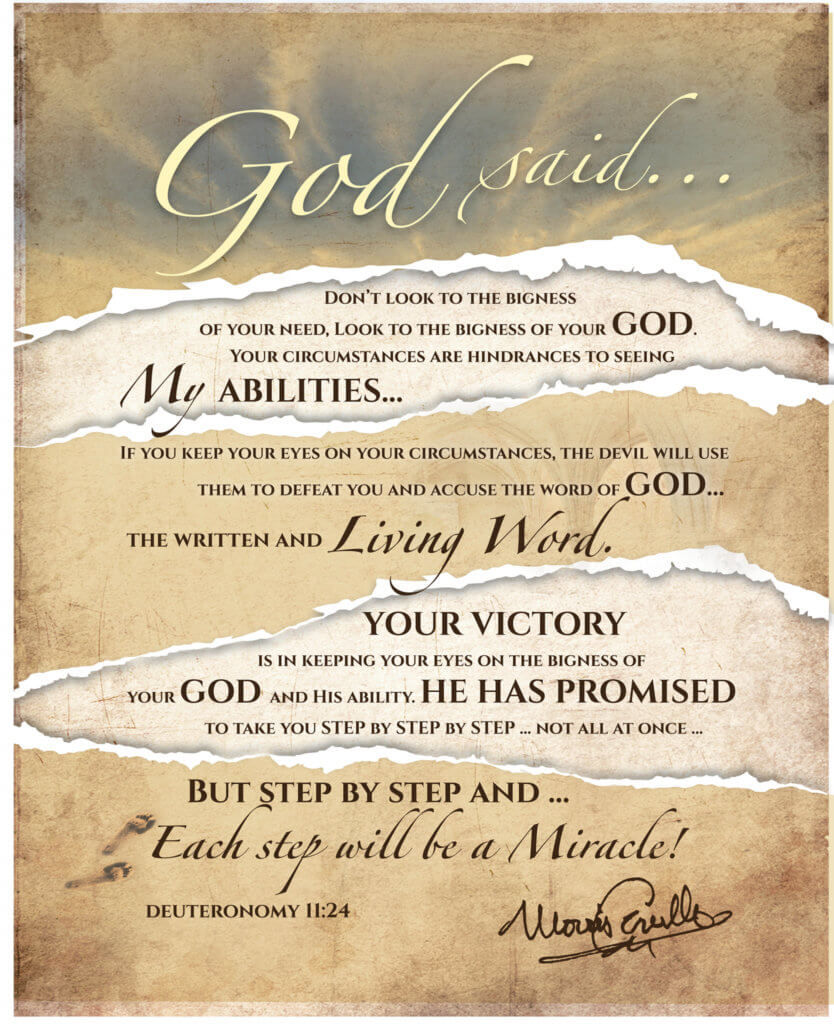 God said...
Don't look to the bigness
of your need, Look to the bigness of your GOD.
Your circumstances are hindrances to seeing
My ABILITIES...
If you keep your eyes on your circumstances, the devil will use
them to defeat you and accuse the word of GOD...
the written and Living Word.
YOUR VICTORY
is in keeping your eyes on the bigness of
your GOD and His ability. HE HAS PROMISED
to take you STEP BY STEP BY STEP ... not all at once ...
But step by step and ...
Each step will be a Miracle!
Deuteronomy 11:24
Morris Cerullo